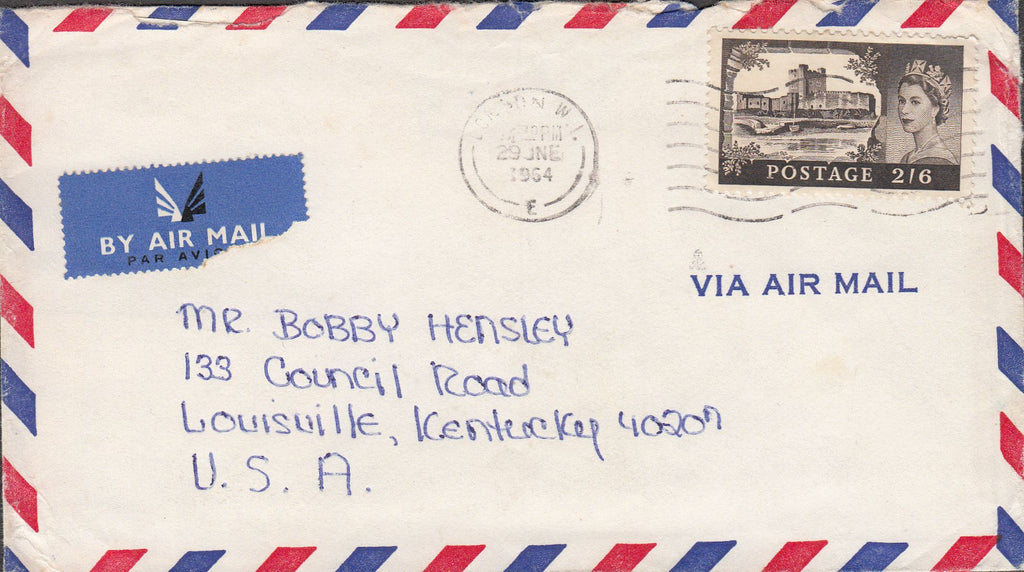 LONDON W.1.
PM
29 JNE
1964
E
POSTAGE 2/6
BY AIR MAIL
PAR AVIO
VIA AIR MAIL
MR. BOBBY HENSLEY
133 Council Road
Louisville, Kentucky 40207
U. S. A.